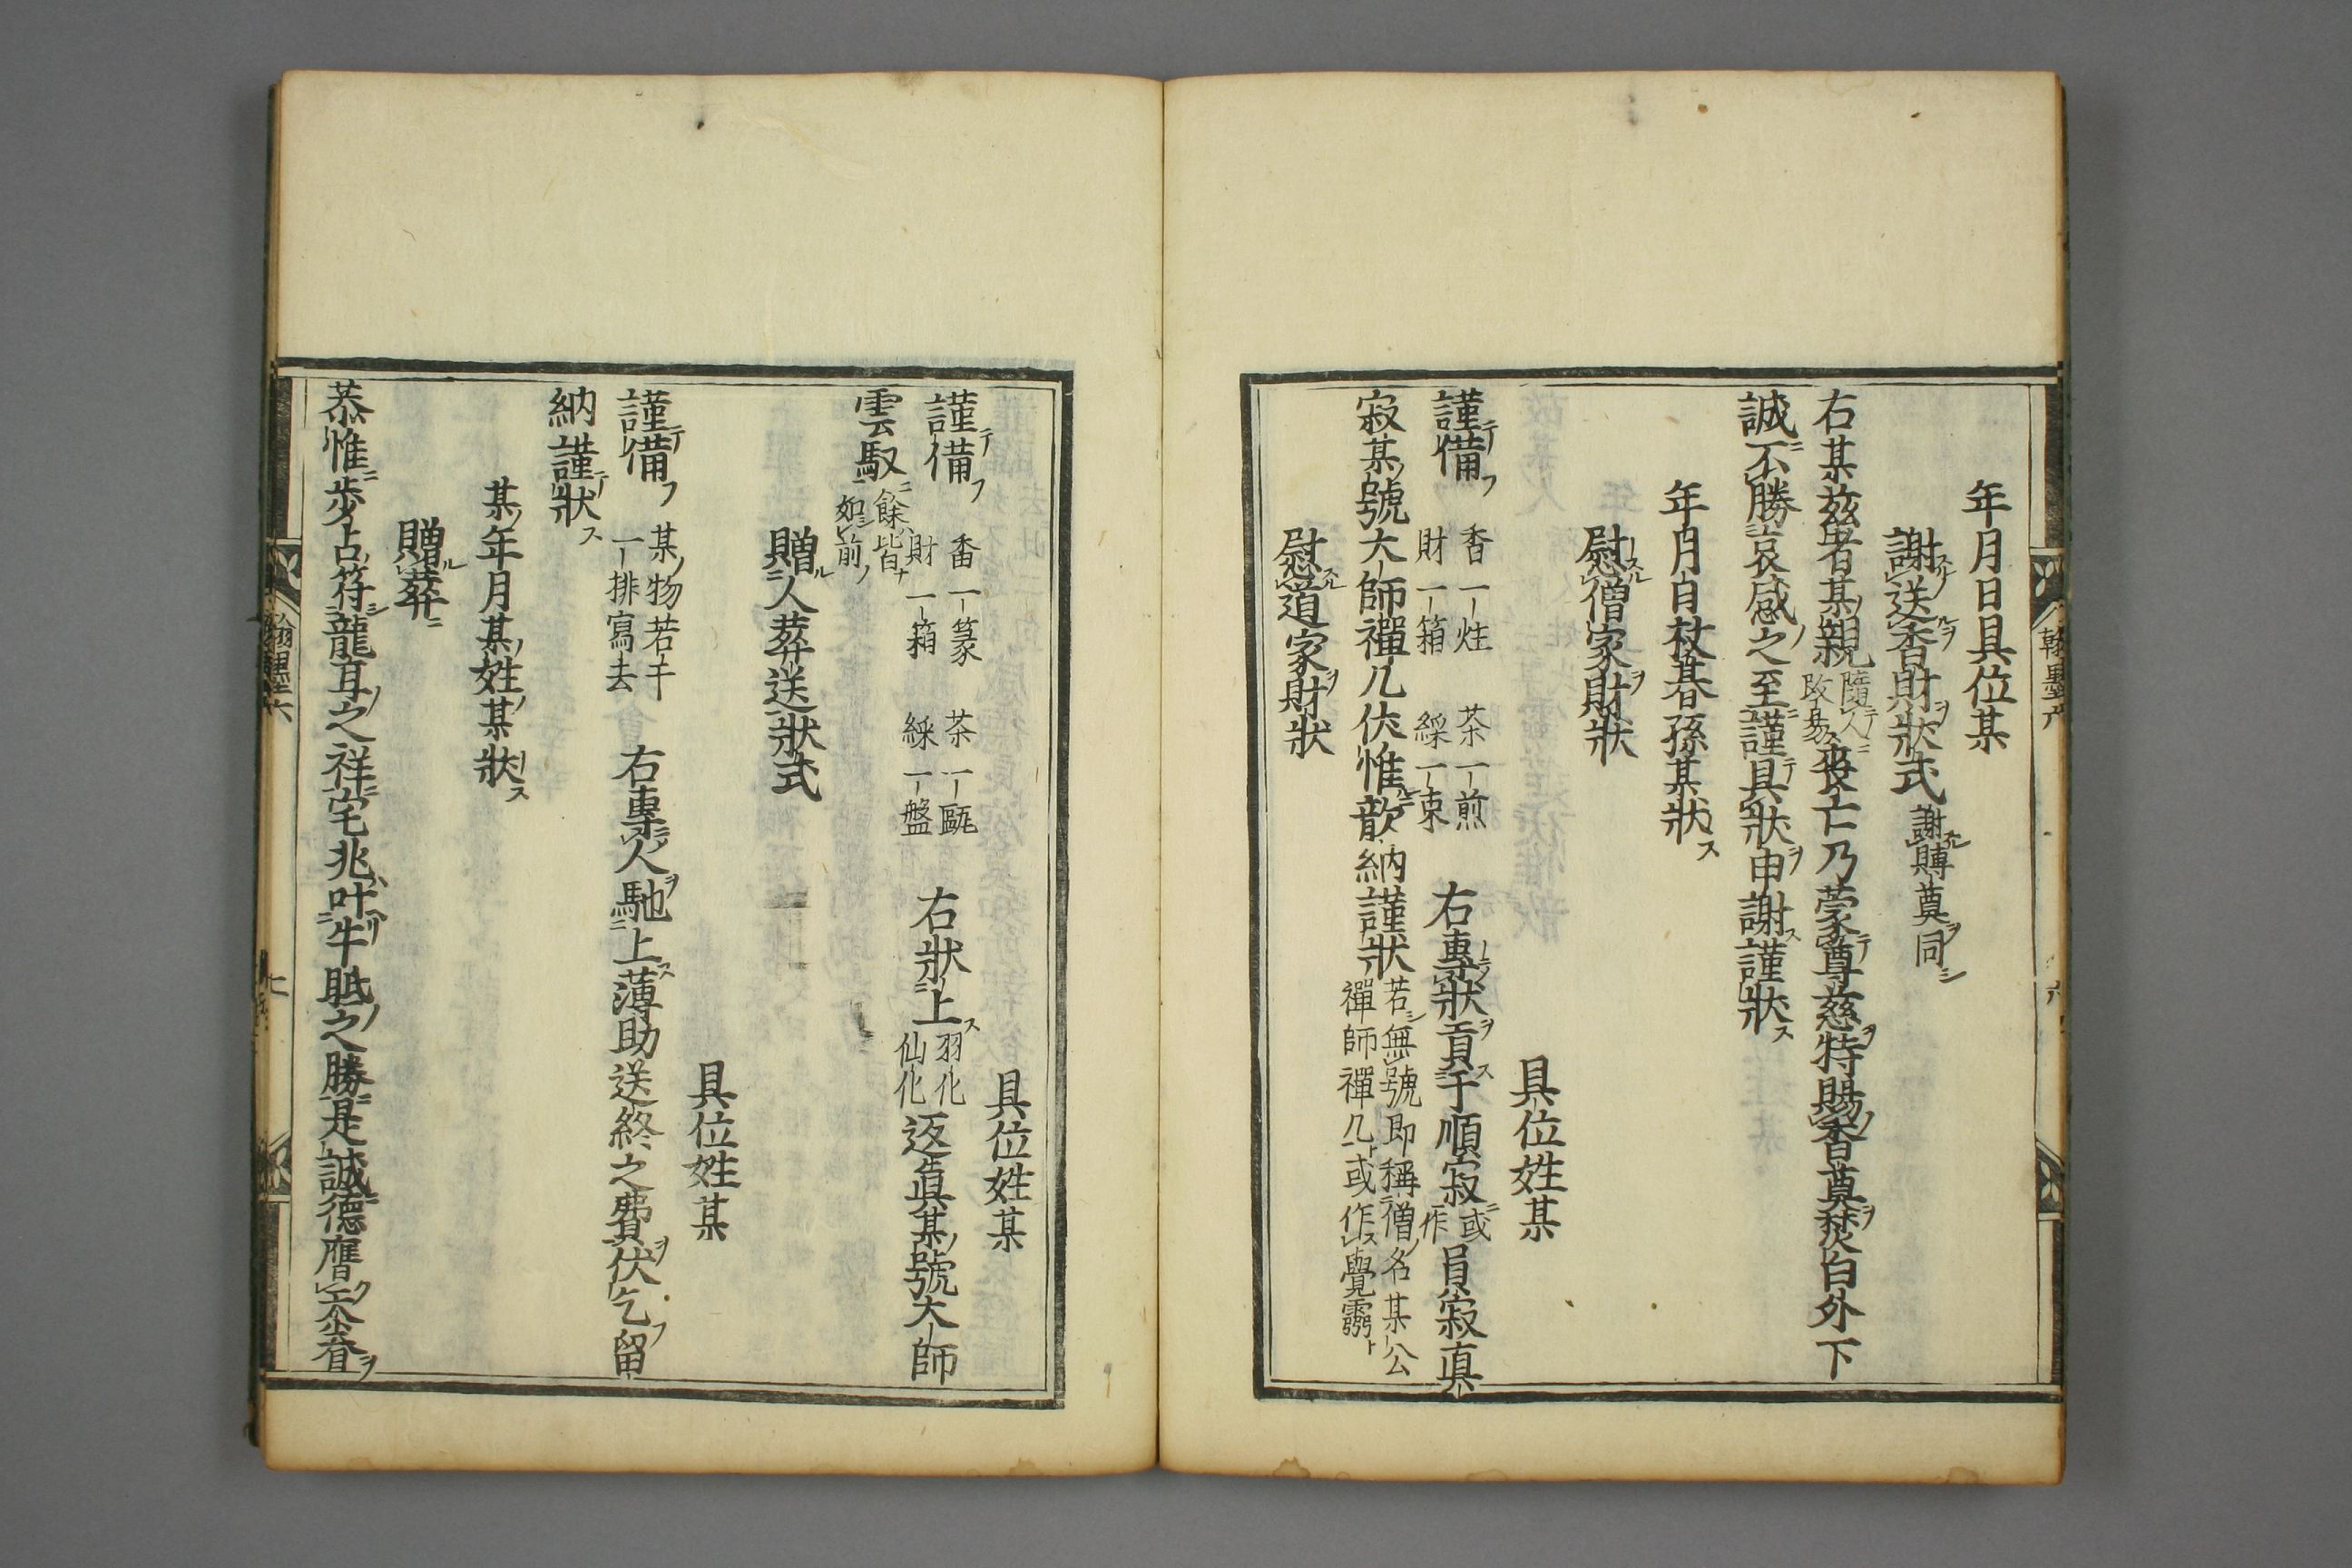 年月日具位某
謝送香財狀式 謝賻奠同
右某兹者某親 隨人改易 喪亡乃蒙尊慈特賜香奠焚白外下
誠不勝哀感之至謹具狀申謝謹狀
年月日杖朞孫某狀
慰僧家財狀
具位姓某
謹備 香一炷 財一箱 茶一煎 綵一束 右專狀貢于順寂 或作 員寂真
寂某號大師禪几伏惟歆納謹狀 若無號即稱僧名某公禪師禪几或作覺靈
慰道家財狀
具位姓某
謹備 香一篆 財一箱 茶一甌 綵一盤 右狀上 羽化仙化 返真某號大師
雲馭 餘皆如前
贈人葬送狀式
具位姓某
謹備 某物若干一排寫去 右專人馳上薄助送終之費伏乞留
納謹狀
某年月某姓某狀
贈葬
恭惟步占符龍耳之祥宅兆叶牛眠之勝是誠德膺天眷
翰墨六